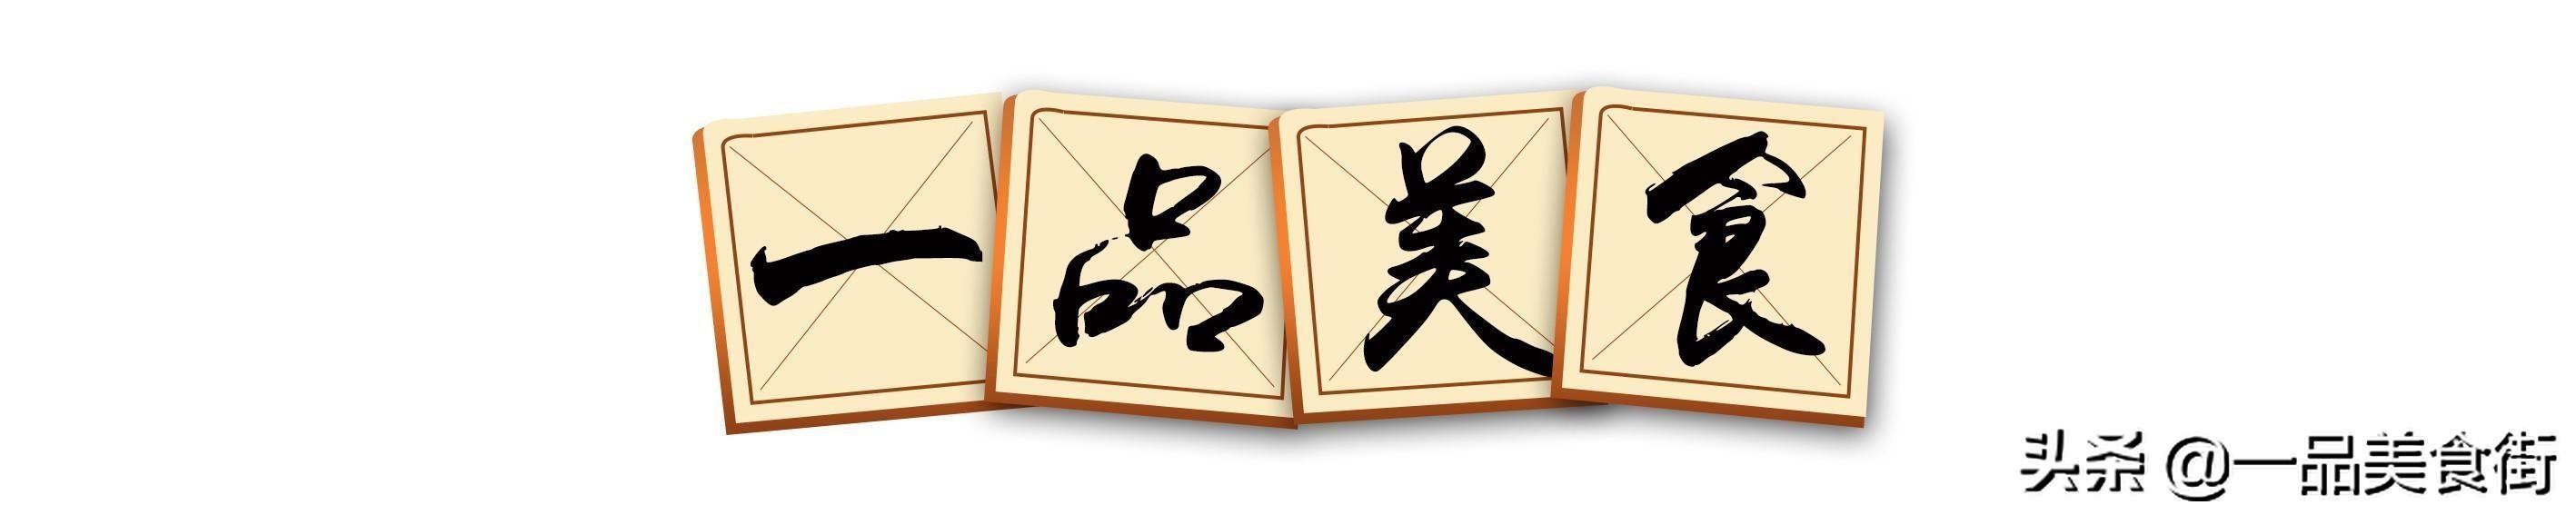 一品美食
头条 @一品美食街